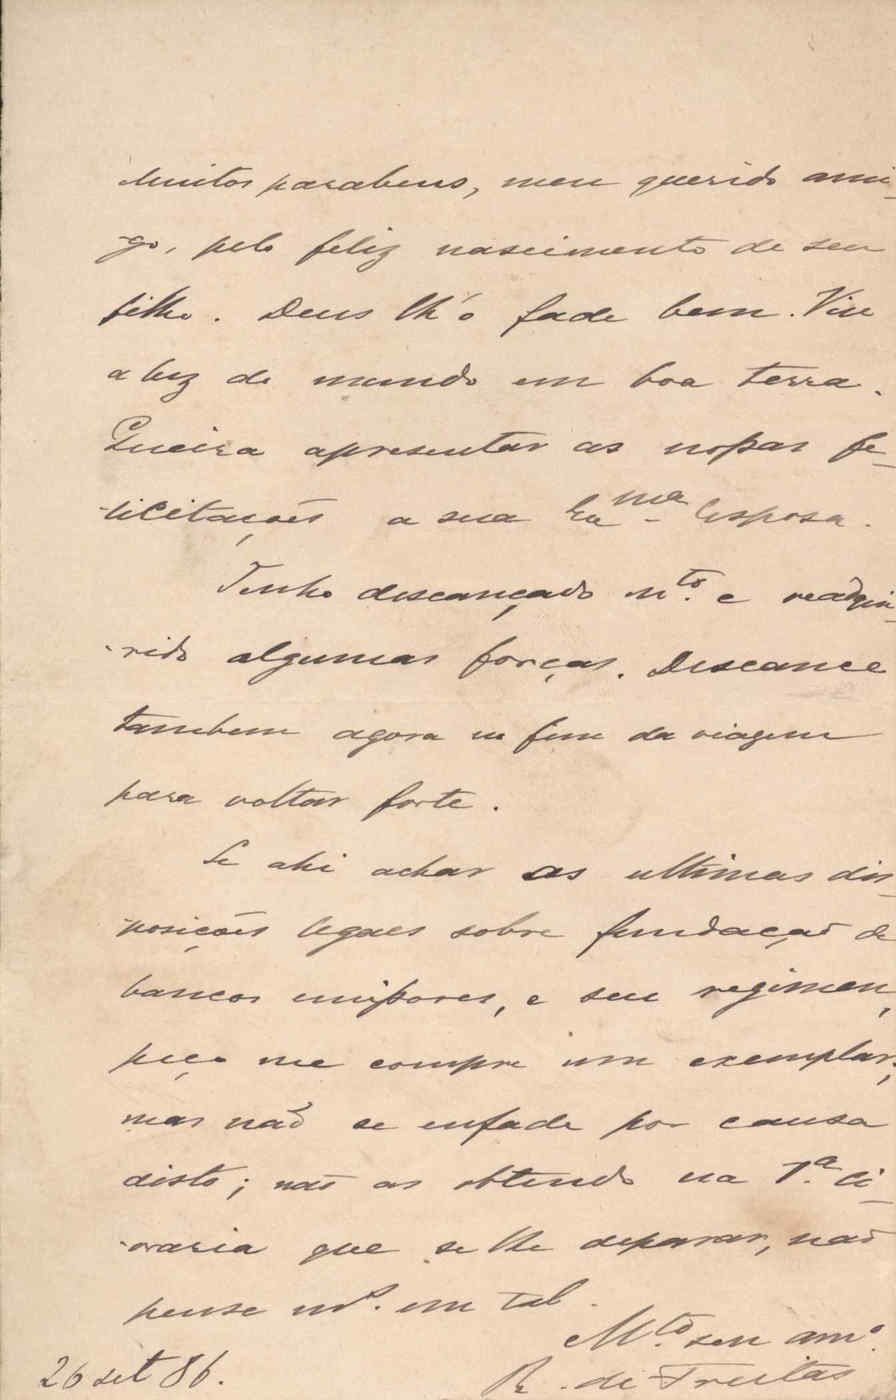 Muitos parabens, meu querido ami-
go, pelo feliz nascimento de seu
filho. Deus lh'o fade bem. Viu
a luz do mundo em boa terra.
Queira apresentar as nossas fe-
licitações a sua Exma Esposa.
Tenho descançado mto. e readqui-
rido algumas forças. Descance
tambem agora no fim da viagem
para voltar forte.
Se ahi achar as ultimas dis-
posições legaes sobre fundação de
bancos emissores, e seu regimen,
peço me compre um exemplar;
mas não se enfade por causa
disto; não as obtendo na 1.ª li-
vraria que se lhe deparar, não
pense ms. em tal.
Mto seu amo.
R. de Freitas
26 set 86.